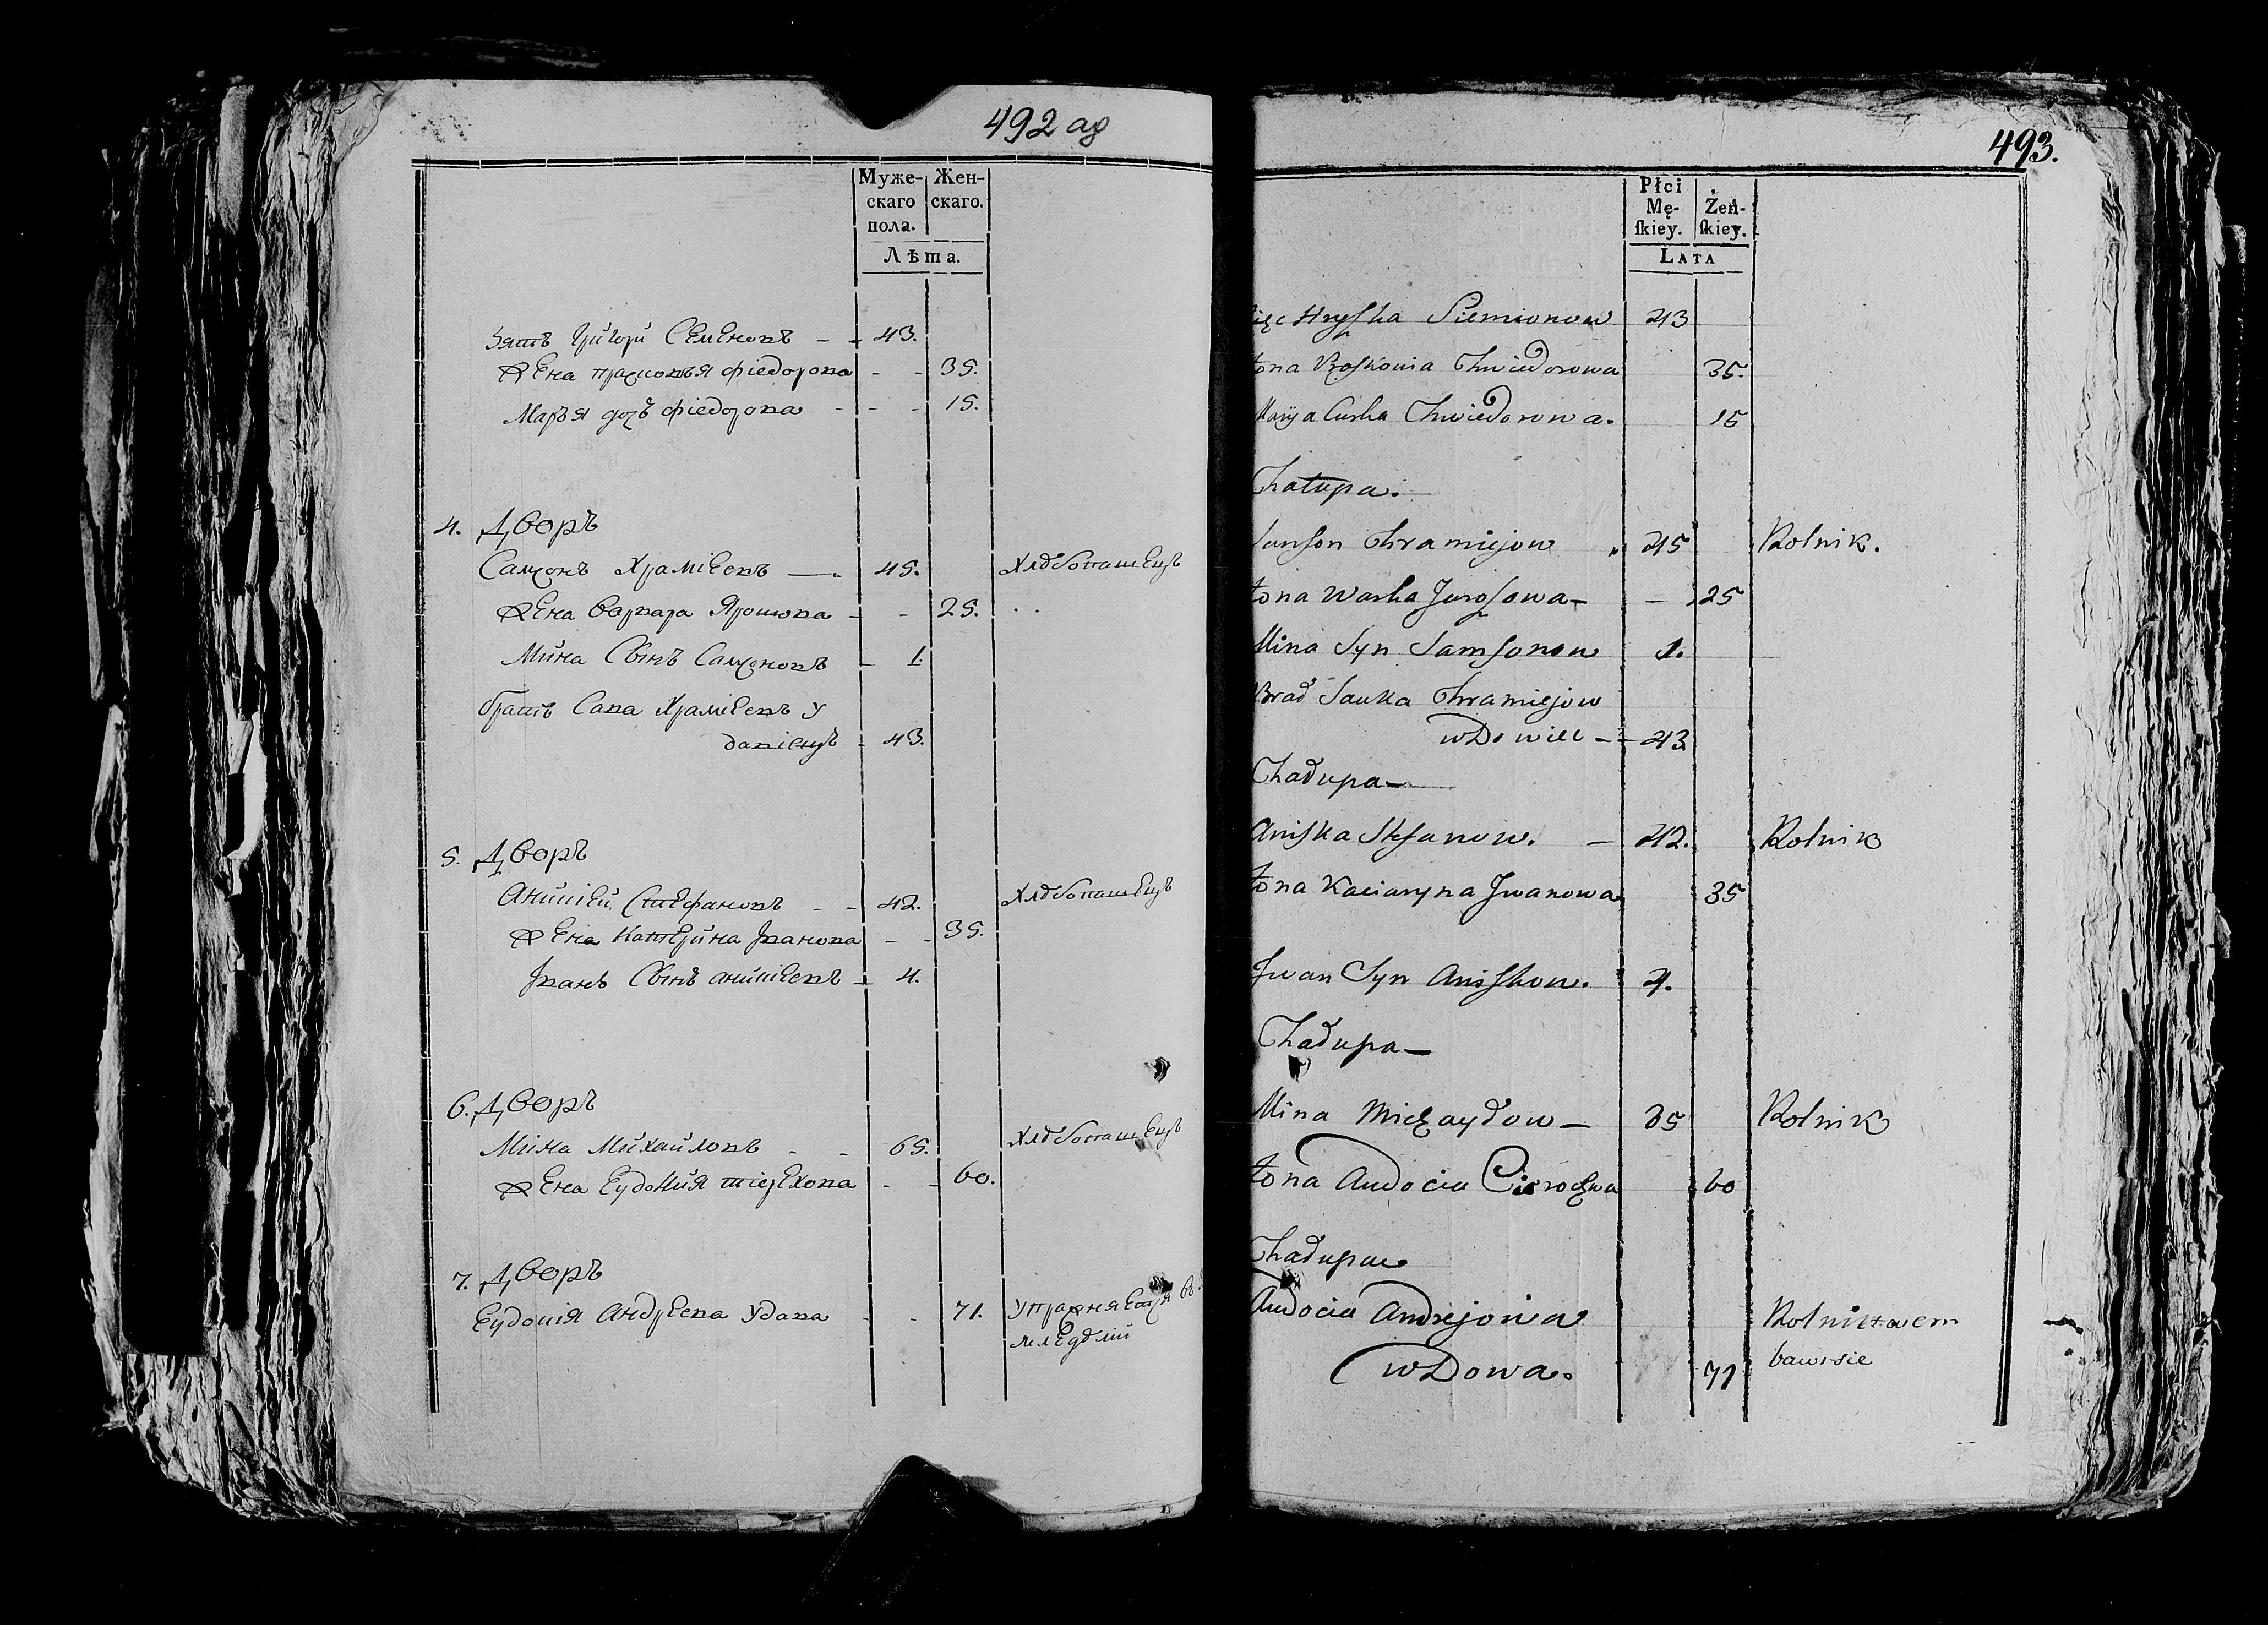 492 об
Муже- Жен-
скаго скаго.
пола.
Лѣта.
зять Григори Семеновъ - - 43.
Жена прасковья фіедорова - - 35.
Марья дочь фіедорова - - - 15.
4. Дворъ
Самсонъ Храміеевъ —. 45. Хлѣбопашецъ
Жена варвара Ярошова - - 25. . .
Мина Сынъ Самсоновъ - 1.
братъ Сава Храміеевъ у
давіецъ - 43.
5. Дворъ
Анишіеи Стефановъ - - 42. Хлѣбопашецъ
Жена Катерина Іванова - - 35.
Іванъ Сынъ анишіеевъ - 4.
6. Дворъ
Мина Михаиловъ - - 65. Хлѣбопашецъ
Жена Еудокия тіерехова - - 60.
7. Дворъ
Еудокія Андреева Удава - - 71. упражняется въ
земледеліи
493.
Płci Żeń-
Mę- ſkiey.
ſkiey.
Lata
Hryſka Siemionow 43
żona Proſkowia Chwiedorowa 35.
Marya Curka Chwiedorowa. 15
Chałupa.
Samſon Chramiejow „ 45 Rolnik.
żona Warka Jaroſowa - — 25
Mina Syn Samſonow 1.
Brad Sauka Chramiejow
wDowiec - - 43
Chałupa —
Aniſka Stefanow. — 42. Rolnik
żona Kaciaryna Jwanowa 35
Jwan Syn Aniſkow. 4.
Chałupa —
Mina Michayłow — 65 Rolnik
żona Audocia Cierochowa 60
Chałupa
Audocia Andrejowa Rolnictwem
wDowa. 71 bawi sie